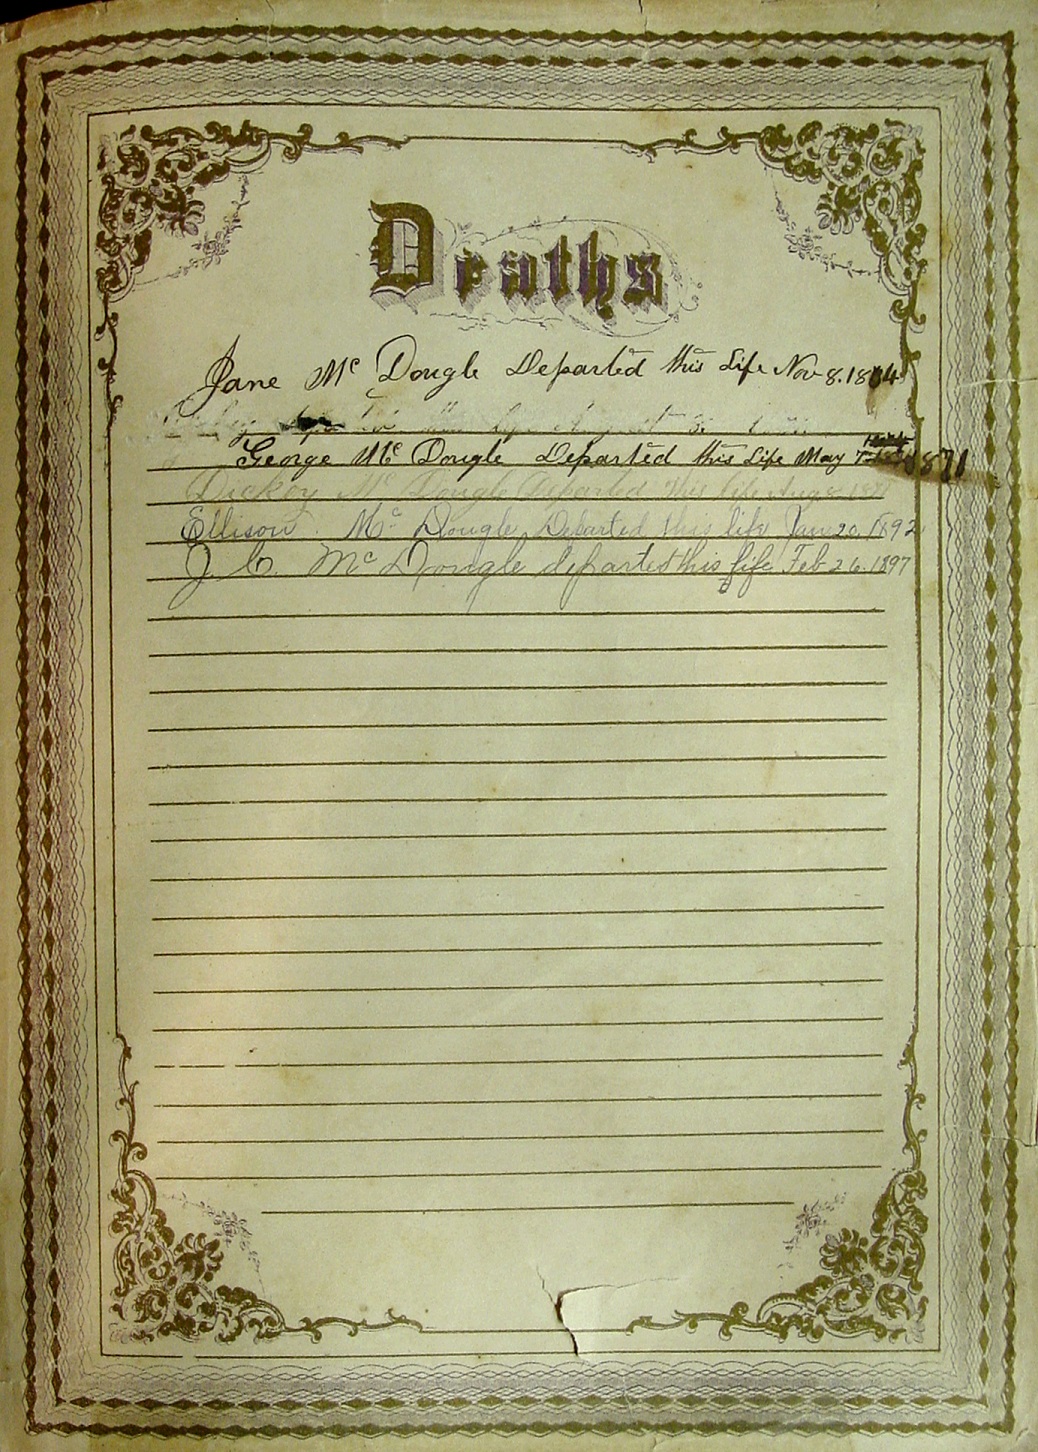 Deaths
Jane Mc Dougle Departed this Life Nov 8. 1864
this life August
George Mc Dougle Departed this Life May 1871
Dickey Mc Dougle Departed this life Aug 8
Ellison Mc Dougle Departed this life Jan 20. 1892
J. C. Mc Dougle departed this life Feb 26. 1897